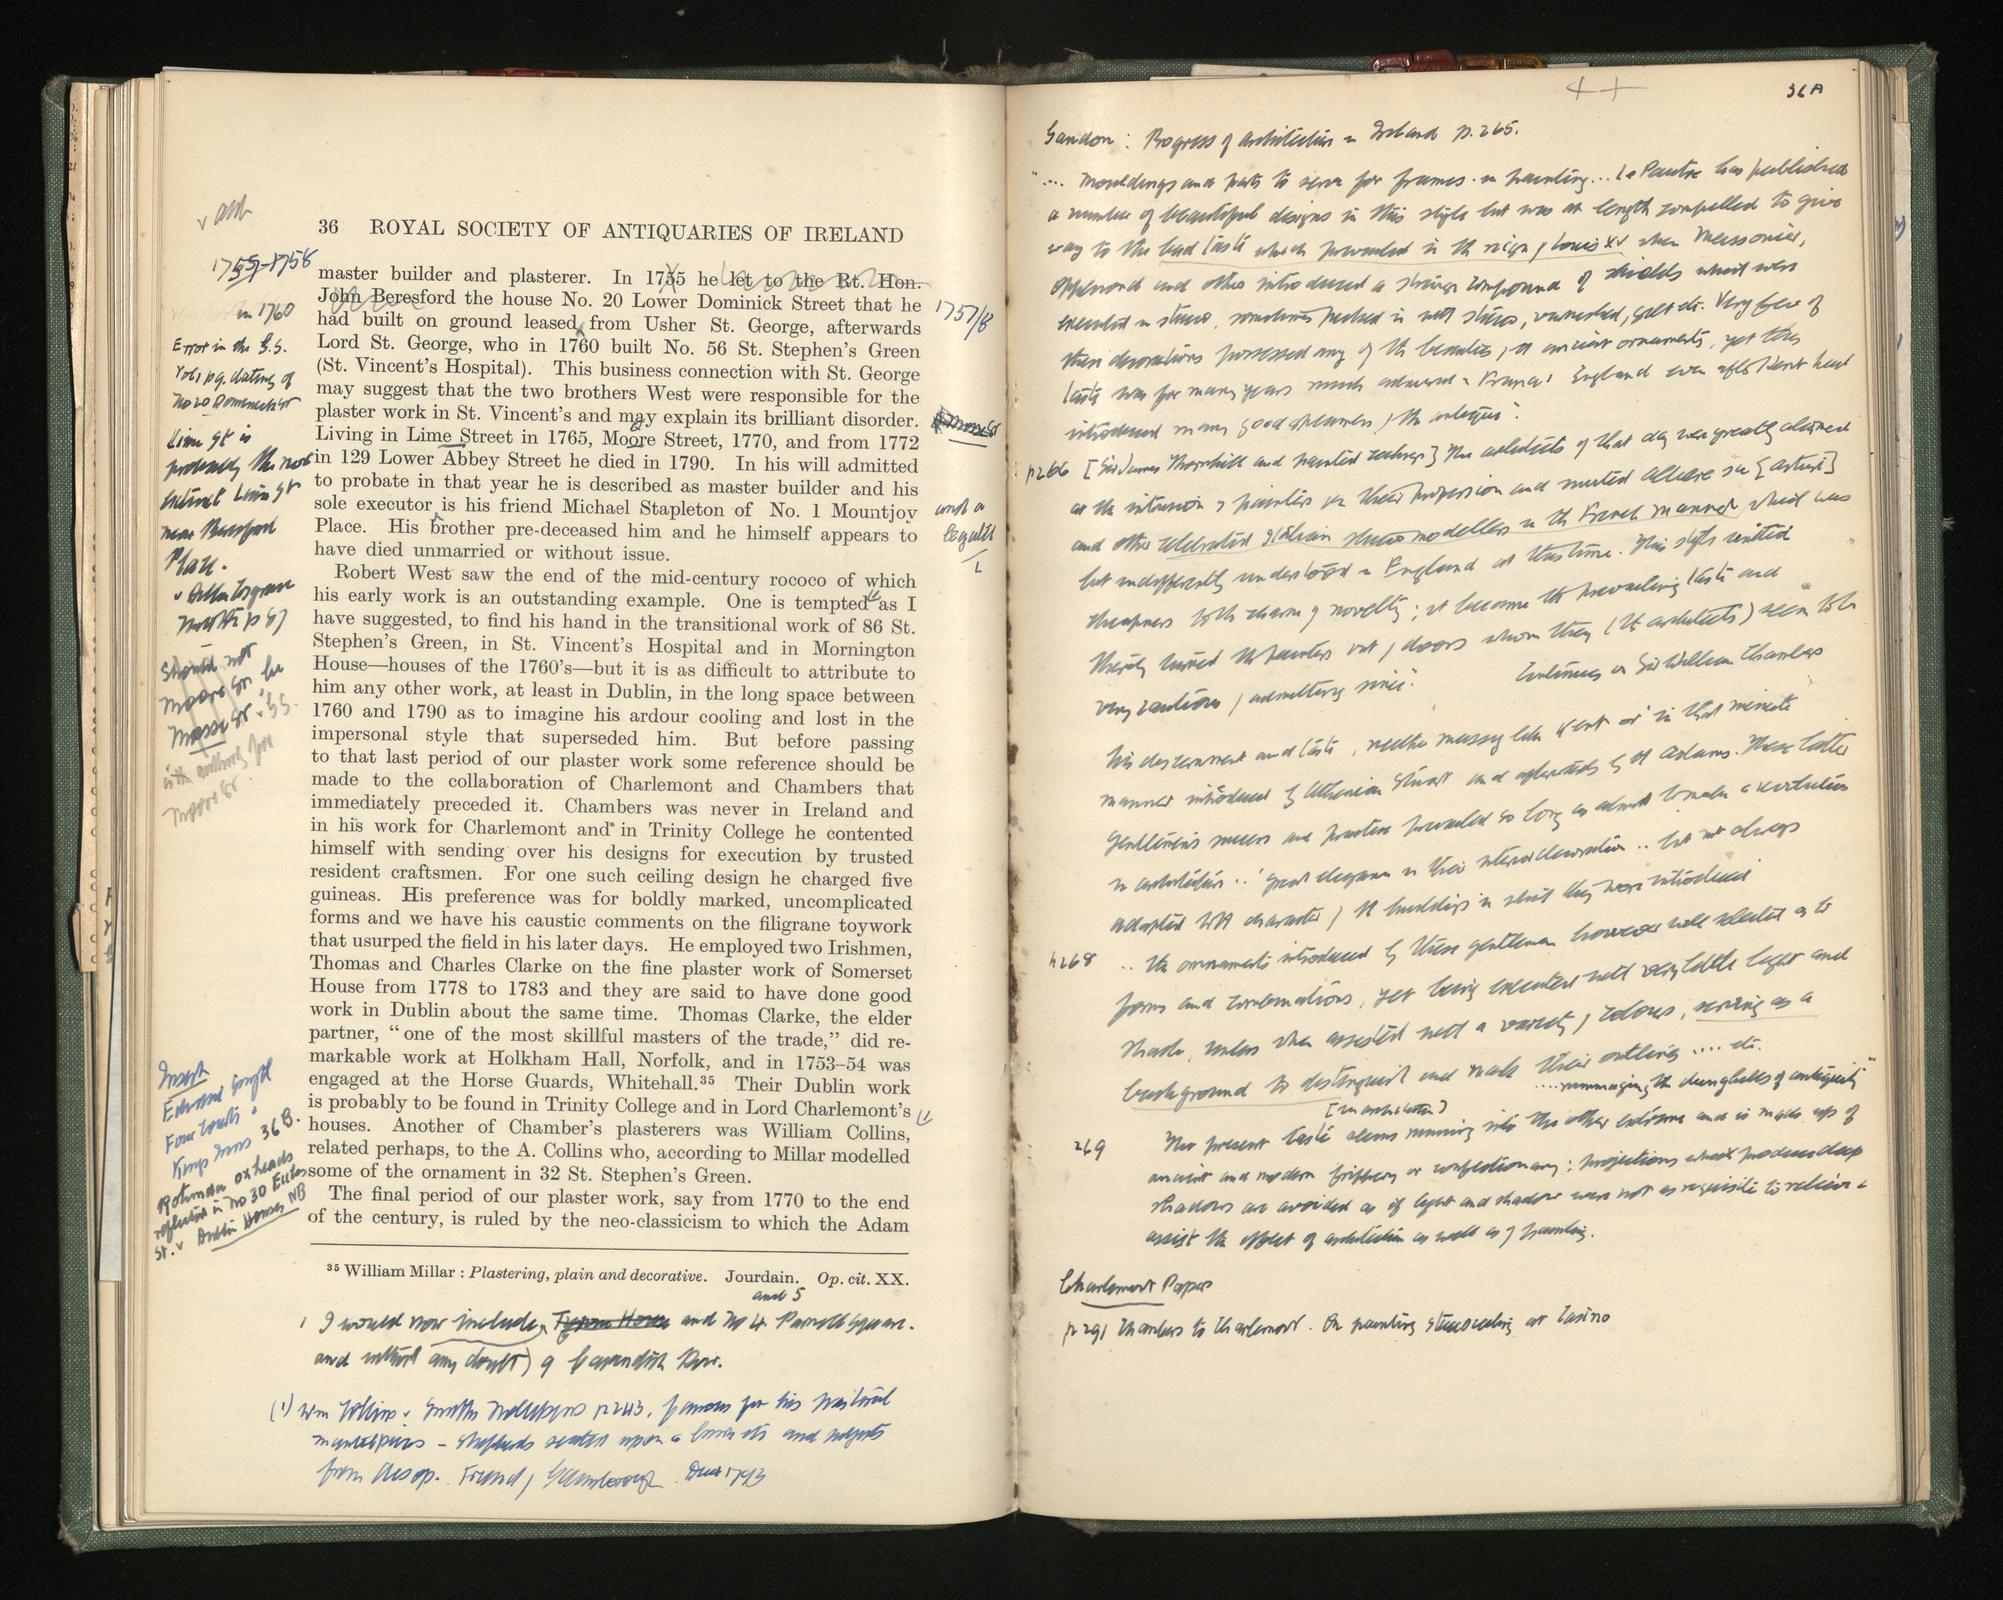 36 ROYAL SOCIETY OF ANTIQUARIES OF IRELAND
master builder and plasterer. In 1755 he let to the Rt. Hon.
John Beresford the house No. 20 Lower Dominick Street that he
had built on ground leased from Usher St. George, afterwards
Lord St. George, who in 1760 built No. 56 St. Stephen's Green
(St. Vincent's Hospital). This business connection with St. George
may suggest that the two brothers West were responsible for the
plaster work in St. Vincent's and may explain its brilliant disorder.
Living in Lime Street in 1765, Moore Street, 1770, and from 1772
in 129 Lower Abbey Street he died in 1790. In his will admitted
to probate in that year he is described as master builder and his
sole executor is his friend Michael Stapleton of No. 1 Mountjoy
Place. His brother pre-deceased him and he himself appears to
have died unmarried or without issue.
Robert West saw the end of the mid-century rococo of which
his early work is an outstanding example. One is tempted as I
have suggested, to find his hand in the transitional work of 86 St.
Stephen's Green, in St. Vincent's Hospital and in Mornington
House—houses of the 1760's—but it is as difficult to attribute to
him any other work, at least in Dublin, in the long space between
1760 and 1790 as to imagine his ardour cooling and lost in the
impersonal style that superseded him. But before passing
to that last period of our plaster work some reference should be
made to the collaboration of Charlemont and Chambers that
immediately preceded it. Chambers was never in Ireland and
in his work for Charlemont and in Trinity College he contented
himself with sending over his designs for execution by trusted
resident craftsmen. For one such ceiling design he charged five
guineas. His preference was for boldly marked, uncomplicated
forms and we have his caustic comments on the filigrane toywork
that usurped the field in his later days. He employed two Irishmen,
Thomas and Charles Clarke on the fine plaster work of Somerset
House from 1778 to 1783 and they are said to have done good
work in Dublin about the same time. Thomas Clarke, the elder
partner, "one of the most skillful masters of the trade," did re-
markable work at Holkham Hall, Norfolk, and in 1753–54 was
engaged at the Horse Guards, Whitehall.³⁵ Their Dublin work
is probably to be found in Trinity College and in Lord Charlemont's
houses. Another of Chamber's plasterers was William Collins,
related perhaps, to the A. Collins who, according to Millar modelled
some of the ornament in 32 St. Stephen's Green.
The final period of our plaster work, say from 1770 to the end
of the century, is ruled by the neo-classicism to which the Adam
³⁵ William Millar : Plastering, plain and decorative. Jourdain. Op. cit. XX.
and 5
I would now include and No 4 Parnell Square.
and without any doubt) 9 Cavendish Row.
(1) Wm Collins v Smith's Nollekens p 243. famous for his pastoral
mantelpieces – shepherds seated upon a bank etc and subjects
from Aesop. Friend of Gainsborough. Died 1793
1755–1758
in 1760
Error in the G.S.
Vol 1 pg. dating of
No 20 Dominick St
Lime St is
probably the not
Lime St
near Beresford
Place.
should not
Moore St be
Moss St
Moore St
Insert
Edward Smyth
Four Courts
Kings Inns 36B.
Rotunda ox heads
in No 30 Eccles
St. v Dublin Houses NB
1757/8
and a
legatee
36A
Gandon : Progress of architecture in Ireland p. 265.
".... Mouldings and parts to serve for frames in painting... Le Pautre has published
a number of beautiful designs in this style but was at length compelled to give
way to the bad taste which prevailed in the reign of Louis XV when Meissonier,
Oppenord and others introduced a strange compound of shields which were
executed in stucco, sometimes picked in with stucco, varnished, gilt etc. Very few of
these decorations possessed any of the beauties of ancient ornaments, yet this
taste was for many years much admired in France & England even after Kent had
introduced many good specimens of the antique".
p266 [Sir James Thornhill and painted ceilings] The architects of that day were greatly alarmed
at the intrusion of painters on their profession and invited
and other celebrated Italian stucco modellers in the French manner which was
but indifferently understood in England at this time. This style united
cheapness with charm of novelty; it became the prevailing taste and
thereby turned the painters out of doors whom they (the architects) seem to be
very cautious of admitting since." Continues on Sir William Chambers
his discernment and taste, neither massy like Kent or 'in that minute
manner introduced by Athenian Stuart and afterwards by Adams. These latter
gentlemen's success and practice prevailed so long as almost to make a revolution
in architecture ..' great elegance in their interior decoration .. but not always
adapted to the character of the buildings in which they were introduced
p268 .. the ornaments introduced by these gentlemen however well selected as to
forms and combinations, yet being executed with very little light and
shade, unless when assisted with a variety of colours, serving as a
background to distinguish and mark their outlines .... etc.
....rummaging the dunghills of antiquity"
[in architecture]
269 The present taste seems running into the other extreme and is made up of
ancient and modern frippery or confectionary; projections which produce deep
shadows are avoided as if light and shadow were not as requisite to relieve &
assist the effect of architecture as well as of painting.
Charlemont Papers
p 291 Chambers to Charlemont. On painting stucco ceiling at Casino